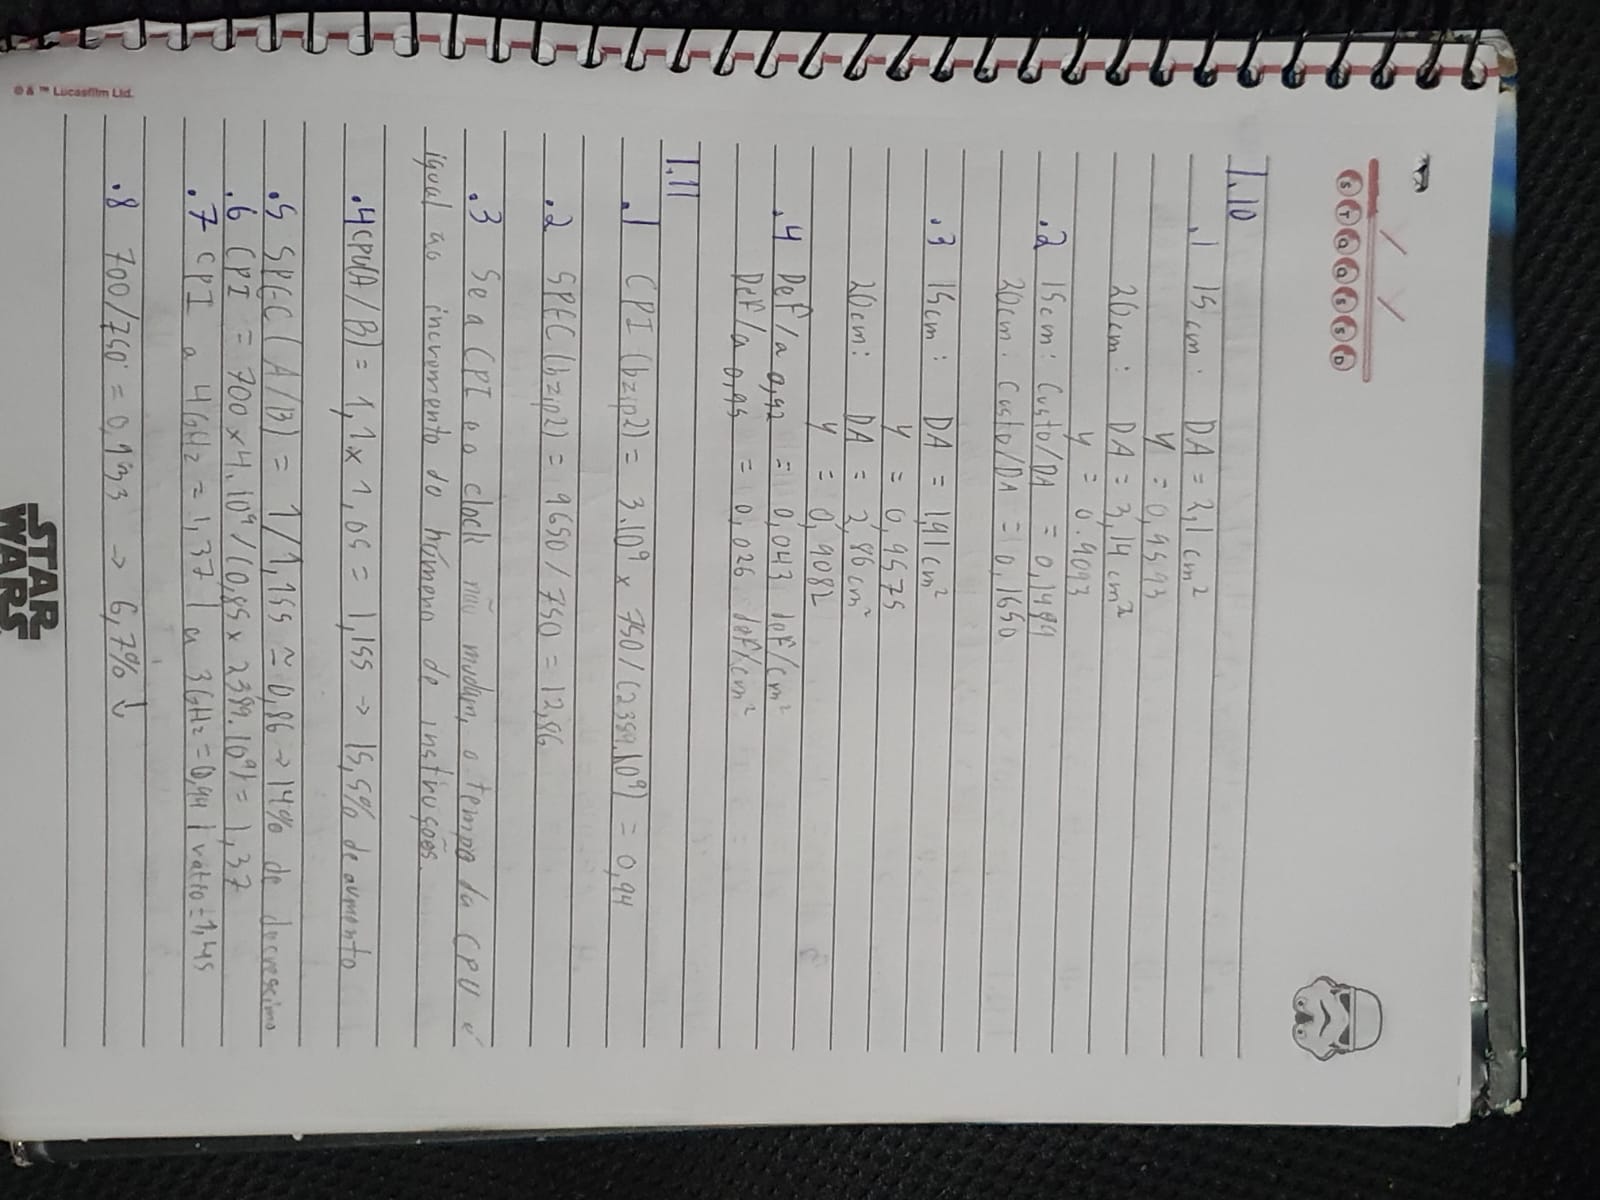 S T Q Q S S D
1.10
.1 15cm: DA = 2,1 cm²
y = 0,9593
20cm: DA = 3,14 cm²
y = 0.9093
.2 15cm: Custo/DA = 0,1499
20cm: Custo/DA = 0,1650
.3 15cm: DA = 1,91 cm²
y = 0,9575
20cm: DA = 2,86 cm²
y = 0,9082
.4 Def/a 0,92 = 0,043 def/cm²
Def/a 0,95 = 0,026 def/cm²
1.11
.1 CPI (bzip2) = 3.10⁹ x 750 / (2389.10⁹) = 0,94
.2 SPEC (bzip2) = 9650 / 750 = 12,86
.3 Se a CPI e o clock não mudam, o tempo da CPU é
igual ao incremento do número de instruções.
.4 CPU(A/B) = 1,1 x 1,05 = 1,155 → 15,5% de aumento
.5 SPEC (A/B) = 1/1,155 ≅ 0,86 → 14% de decrescimo
.6 CPI = 700 x 4.10⁹ / (0,85 x 2389.10⁹) = 1,37
.7 CPI a 4GHz = 1,37 | a 3GHz = 0,94 | ratio = 1,45
.8 700/750 = 0,933 → 6,7% ↓
© & ™ Lucasfilm Ltd.
STAR
WARS